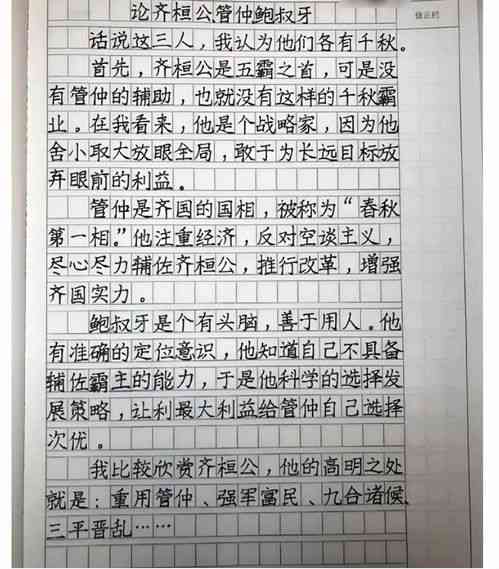 论齐桓公管仲鲍叔牙
话说这三人，我认为他们各有千秋。
首先，齐桓公是五霸之首，可是没
有管仲的辅助，也就没有这样的千秋霸
业。在我看来，他是个战略家，因为他
舍小取大放眼全局，敢于为长远目标放
弃眼前的利益。
管仲是齐国的国相，被称为“春秋
第一相。”他注重经济，反对空谈主义，
尽心尽力辅佐齐桓公，推行改革，增强
齐国实力。
鲍叔牙是个有头脑，善于用人。他
有准确的定位意识，他知道自己不具备
辅佐霸主的能力，于是他科学的选择发
展策略，让利最大利益给管仲自己选择
次优。
我比较欣赏齐桓公，他的高明之处
就是：重用管仲、强军富民、九合诸候、
三平晋乱……